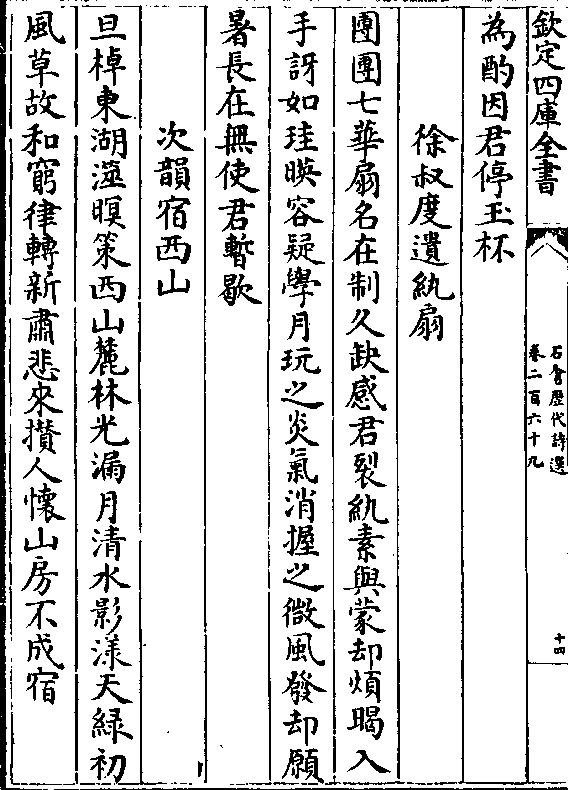 欽定四庫全書
石倉歷代詩選
卷二百六十九
十四
為酌因君停玉杯
徐叔度遺紈扇
團團七華扇名在制久缺感君裂紈素與蒙却煩暍入
手訝如珪暎容疑學月玩之炎氣消握之微風發却願
暑長在無使君暫歇
次韻宿西山
旦棹東湖澨暝策西山麓林光漏月清水影漾天綠初
風草故和窮律轉新肅悲來攅人懷山房不成宿